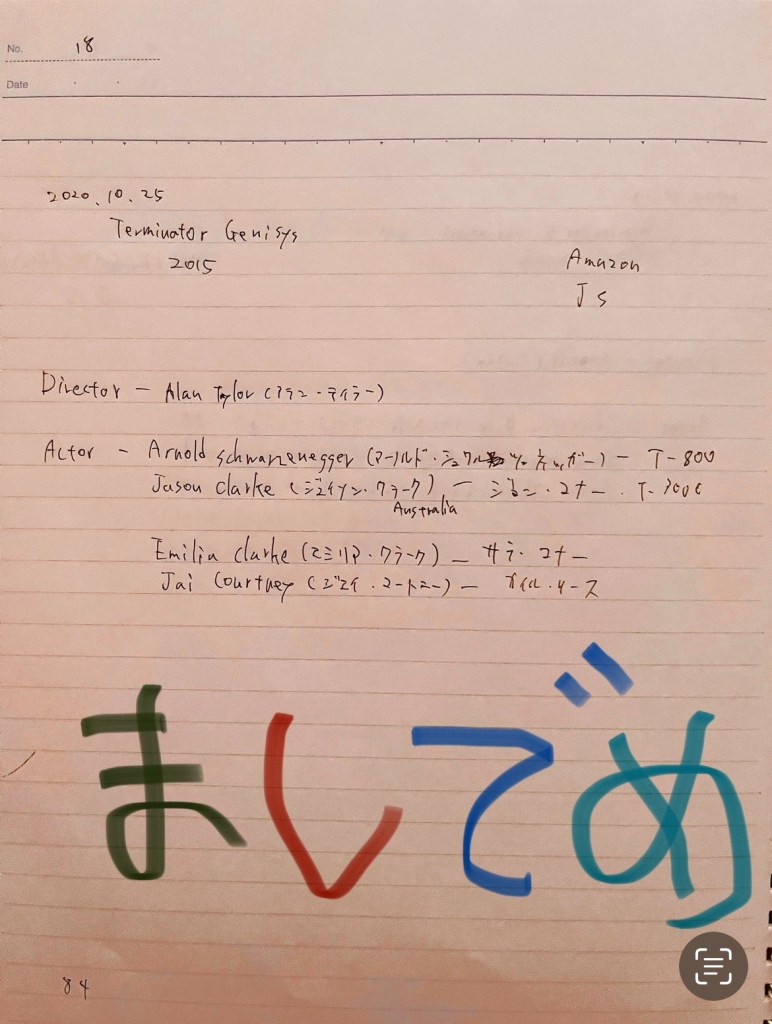 No. 18
Date
2020.10.25
Terminator Genisys
2015
Amazon
JS
Director - Alan Taylor (アラン・テイラー)
Actor - Arnold schwarzenegger (アーノルド・シュワルツェネッガー) - T-800
Jason clarke (ジェイソン・クラーク) - ジョン・コナー. T-3000
Australia
Emilia clarke (エミリア・クラーク) - サラ・コナー
Jai Courtney (ジェイ・コートニー) - カイル・リース
ましでめ
84